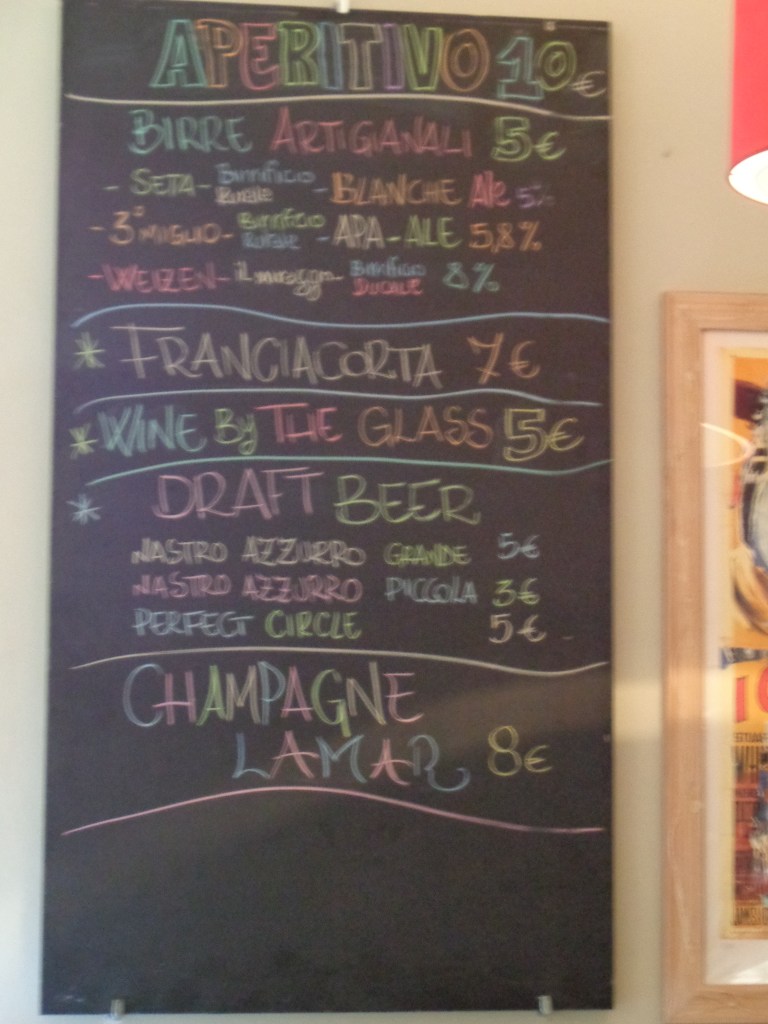 APERITIVO 10€
BIRRE ARTIGIANALI 5€
- SETA - Birrificio Rurale - BLANCHE Ale 5%
- 3° MIGLIO - Birrificio Rurale - APA - ALE 5,8%
- WEIZEN - il miraggio - Birrificio DUCALE 8%
* FRANCIACORTA 7€
* WINE By THE GLASS 5€
* DRAFT BEER
NASTRO AZZURRO GRANDE 5€
NASTRO AZZURRO PICCOLA 3€
PERFECT CIRCLE 5€
CHAMPAGNE
LAMAR 8€